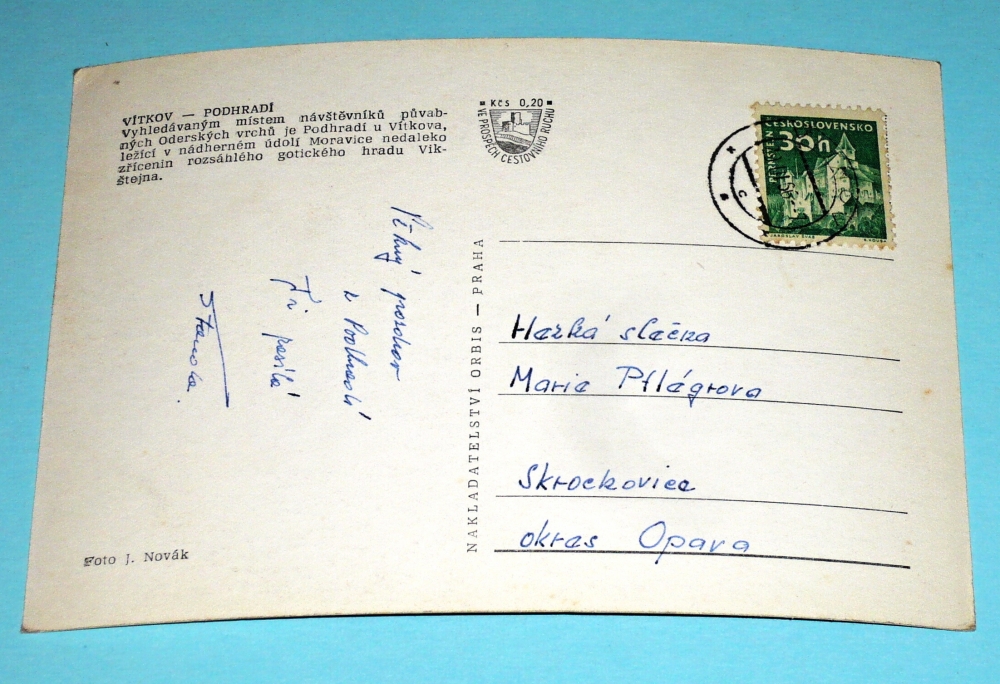 VÍTKOV — PODHRADÍ
Vyhledávaným místem návštěvníků půvab-
ných Oderských vrchů je Podhradí u Vítkova,
ležící v nádherném údolí Moravice nedaleko
zřícenin rozsáhlého gotického hradu Vik-
štejna.
Kčs 0,20
VE PROSPĚCH CESTOVNÍHO RUCHU
ČESKOSLOVENSKO
30h
PERNŠTEJN
JAROSLAV ŠVÁB
Pěkný pozdrav
z Podhradí
Ti posílá
Standa.
NAKLADATELSTVÍ ORBIS — PRAHA
Hezká slečna
Marie Pflégrova
Skrochovice
okres Opava
Foto J. Novák